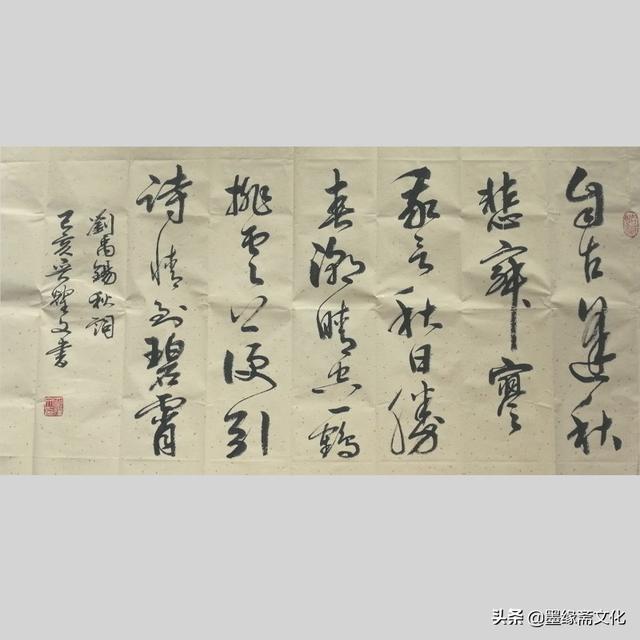 自古逢秋
悲寂寥
我言秋日勝
春潮晴空一鶴
排雲上便引
詩情到碧霄
劉禹錫秋詞
己亥 文書
头条 @墨缘斋文化